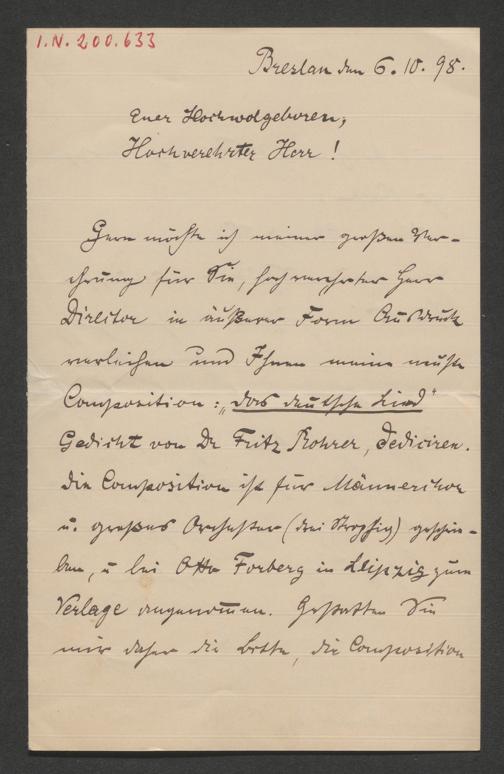 I.N. 200.633
Breslau den 6. 10. 98.
Euer Hochwolgeboren,
Hochverehrter Herr!
Gern möchte ich meiner großen Ver-
ehrung für Sie, hochverehrter Herr
Director in äußerer Form Ausdruck
verleihen und Ihnen meine neuste
Composition: „das deutsche Lied"
Gedicht von Dr Fritz Rohrer, dediciren.
Die Composition ist für Männerchor
u. großes Orchester (drei Strophig) geschrie-
ben, u bei Otto Forberg in Leipzig zum
Verlage angenommen. Gestatten Sie
mir daher die Bitte, die Composition